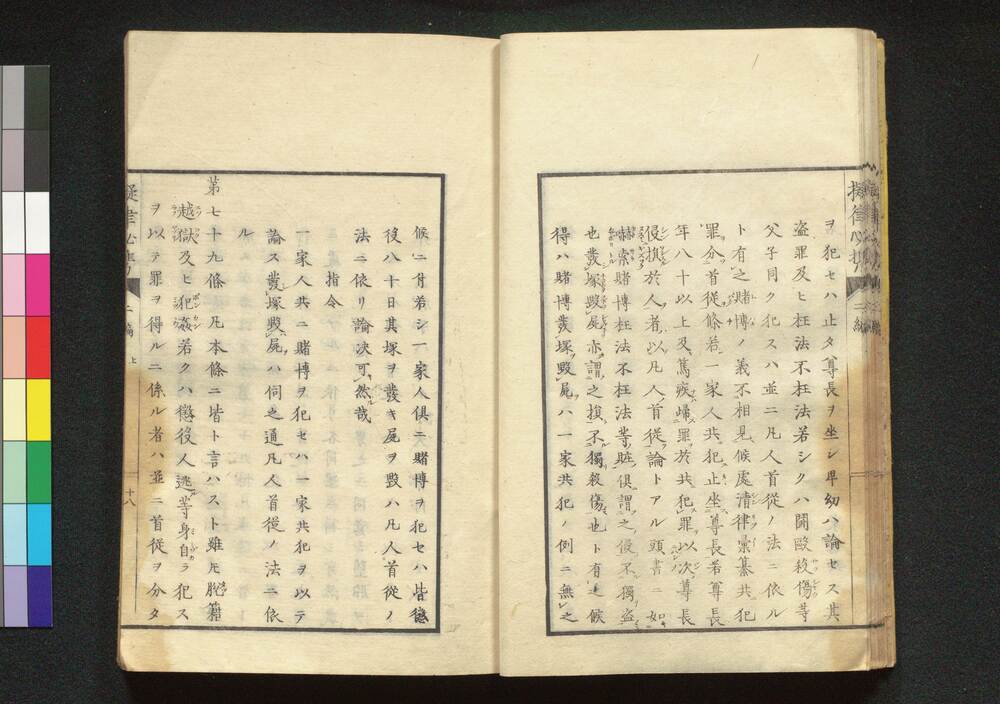 ヲ犯セハ止タ尊長ヲ坐シ卑幼ハ論セス其
盗罪及ヒ枉法不枉法若シクハ闘毆殺傷等
父子同ク犯スハ並ニ凡人首從ノ法ニ依ル
ト有之賭博ノ義不相見候處清律彙纂共犯
罪分首從條若一家人共犯止坐尊長若尊長
年八十以上及篤疾歸罪於共犯罪以次尊長
侵損於人者以凡人首從論トアル頭書ニ如
嚇索賭博枉法不枉法等賍俱謂之侵不獨盗
也發塚毀屍亦謂之損不獨殺傷也ト有之候
得ハ賭博發塚毀屍ハ一家共犯ノ例ニ無之
候ニ付弟シ一家人俱ニ賭博ヲ犯セハ皆懲
役八十日其塚ヲ發キ屍ヲ毀ハ凡人首從ノ
法ニ依リ論決可然哉
指令
一家人共ニ賭博ヲ犯セハ一家共犯ヲ以テ
論ス發塚毀屍ハ伺之通凡人首從ノ法ニ依
ル
第七十九條凡本條ニ皆ト言ハスト雖𪜈脫籍
越獄及ヒ犯姦若クハ懲役人逃等身自ラ犯ス
ヲ以テ罪ヲ得ルニ係ル者ハ並ニ首從ヲ分タ
二編
上
十八